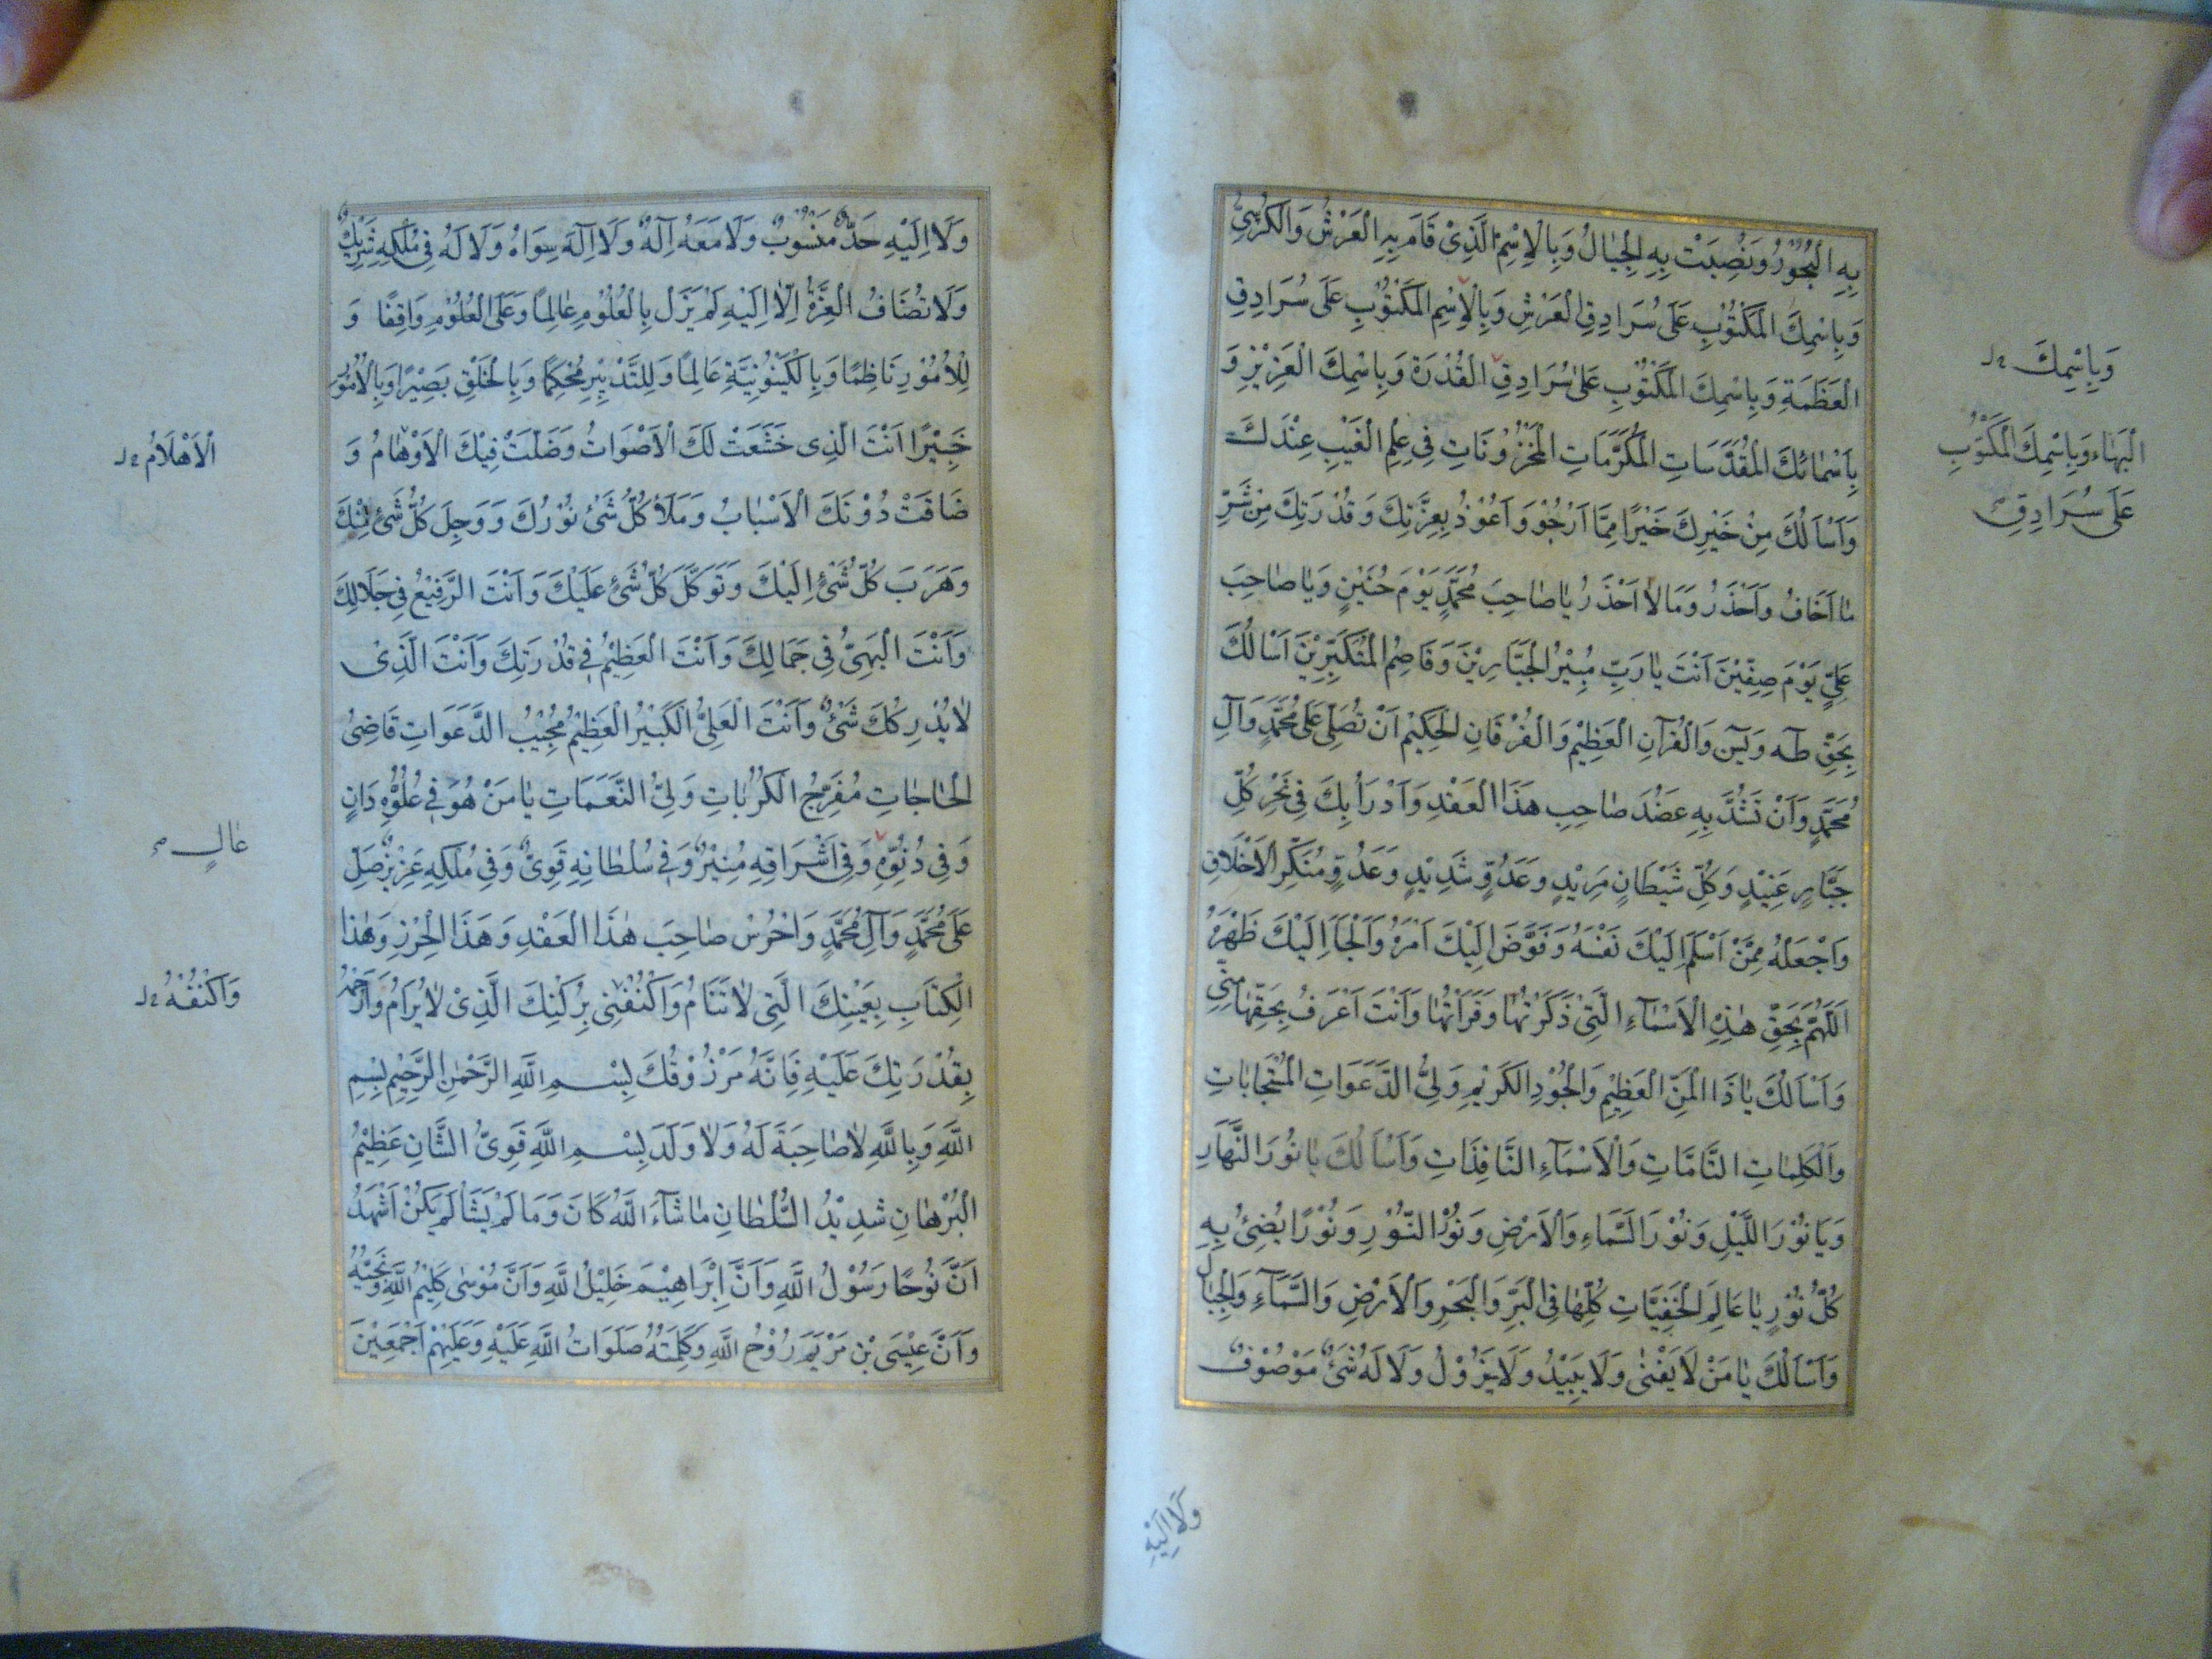 بِهِ الْبُحُوْرُ وَنُصِبَتْ بِهِ الْجِبٰالُ وَبِالْاِسْمِ الَّذِیْ قَامَ بِهِ الْعَرْشُ وَالْكُرْسِیُّ
وَبِاسْمِكَ الْمَكْتُوْبِ عَلٰی سُرَادِقِ الْعَرْشِ وَبِالْاِسْمِ الْمَكْتُوْبِ عَلٰی سُرَادِقِ
الْعَظَمَةِ وَبِاسْمِكَ الْمَكْتُوْبِ عَلٰی سُرَادِقِ الْقُدْرَةِ وَبِاسْمِكَ الْعَزِيْزِ وَ
بِاَسْمٰائِكَ الْمُقَدَّسَاتِ الْمُكَرَّمَاتِ الْمَخْزُوْنَاتِ فِی عِلْمِ الْغَيْبِ عِنْدَكَ
وَاَسْاَلُكَ مِنْ خَيْرِكَ خَيْرًا مِمَّا اَرْجُوْ وَاَعُوْذُ بِعِزَّتِكَ وَقُدْرَتِكَ مِنْ شَرِّ
مٰا اَخَافُ وَاَحْذَرُ وَمَا لاٰ اَحْذَرُ يٰا صٰاحِبَ مُحَمَّدٍ يَوْمَ حُنَيْنٍ وَيٰا صٰاحِبَ
عَلِیٍّ يَوْمَ صِفِّيْنَ اَنْتَ يٰا رَبِّ مُبِيْرُ الْجَبَّارِيْنَ وَقَاصِمُ الْمُتَكَبِّرِيْنَ اَسْاَلُكَ
بِحَقِّ طٰه وَيٰسٓ وَالْقُرْآنِ الْعَظِيْمِ وَالْفُرْقَانِ الْحَكِيْمِ اَنْ تُصَلِّیَ عَلٰی مُحَمَّدٍ وَآلِ
مُحَمَّدٍ وَاَنْ تَشُدَّ بِهِ عَضُدَ صٰاحِبِ هٰذَا الْعَقْدِ وَاَدْرَأُ بِكَ فِی نَحْرِ كُلِّ
جَبَّارٍ عَنِيْدٍ وَكُلِّ شَيْطَانٍ مَرِيْدٍ وَعَدُوٍّ شَدِيْدٍ وَعَدُوٍّ مُنْكَرِ الْاَخْلَاقِ
وَاجْعَلْهُ مِمَّنْ اَسْلَمَ اِلَيْكَ نَفْسَهُ وَفَوَّضَ اِلَيْكَ اَمْرَهُ وَاَلْجَأَ اِلَيْكَ ظَهْرَهُ
اَللّٰهُمَّ بِحَقِّ هٰذِهِ الْاَسْمٰآءِ الَّتِیْ ذَكَرْتُهٰا وَقَرَأْتُهٰا وَاَنْتَ اَعْرَفُ بِحَقِّهٰا مِنِّی
وَاَسْاَلُكَ يٰا ذَا الْمَنِّ الْعَظِيْمِ وَالْجُوْدِ الْكَرِيْمِ وَلِیَّ الدَّعَوَاتِ الْمُسْتَجَابَاتِ
وَالْكَلِمٰاتِ التَّامَّاتِ وَالْاَسْمَآءِ النَّافِذَاتِ وَاَسْاَلُكَ يٰا نُوْرَ النَّهَارِ
وَيَا نُوْرَ اللَّيْلِ وَنُوْرَ السَّمَاءِ وَالْاَرْضِ وَنُوْرَ النُّوْرِ وَنُوْرًا يُضِیْئُ بِهِ
كُلُّ نُوْرٍ يٰا عَالِمَ الْخَفِيَّاتِ كُلِّهٰا فِی الْبَرِّ وَالْبَحْرِ وَالْاَرْضِ وَالسَّمَآءِ وَالْجِبٰالِ
وَاَسْاَلُكَ يٰا مَنْ لَا يَفْنٰی وَلَا يَبِيْدُ وَلَا يَزُوْلُ وَلَا لَهُ شَیْءٌ مَوْصُوْفٌ
وَبِاسْمِكَ
الْبَهٰاءِ وَبِاسْمِكَ الْمَكْتُوْبِ
عَلٰی سُرَادِقِ
وَلَا اِلَيْهِ
وَلَا اِلَيْهِ حَدٌّ مَنْسُوْبٌ وَلَا مَعَهُ اِلٰهٌ وَلَا اِلٰهَ سِوَاهُ وَلَا لَهُ فِی مُلْكِهِ شَرِيْكٌ
وَلَا تُضَافُ الْعِزَّةُ اِلَّا اِلَيْهِ لَمْ يَزَلْ بِالْعُلُوْمِ عٰالِمًا وَعَلَی الْعُلُوْمِ وَاقِفًا وَ
لِلْاُمُوْرِ نَاظِمًا وَبِالْكَيْنُوْنِيَّةِ عَالِمًا وَلِلتَّدْبِيْرِ مُحْكِمًا وَبِالْخَلْقِ بَصِيْرًا وَبِالْاُمُوْرِ
خَبِيْرًا اَنْتَ الَّذِی خَشَعَتْ لَكَ الْاَصْوَاتُ وَضَلَّتْ فِيْكَ الْاَوْهَامُ وَ
ضَاقَتْ دُوْنَكَ الْاَسْبَابُ وَمَلَأَ كُلَّ شَیْءٍ نُوْرُكَ وَوَجِلَ كُلُّ شَیْءٍ مِنْكَ
وَهَرَبَ كُلُّ شَیْءٍ اِلَيْكَ وَتَوَكَّلَ كُلُّ شَیْءٍ عَلَيْكَ وَاَنْتَ الرَّفِيْعُ فِی جَلَالِكَ
وَاَنْتَ الْبَهِیُّ فِی جَمَالِكَ وَاَنْتَ الْعَظِيْمُ فِی قُدْرَتِكَ وَاَنْتَ الَّذِیْ
لاٰ يُدْرِكُكَ شَیْءٌ وَاَنْتَ الْعَلِیُّ الْكَبِيْرُ الْعَظِيْمُ مُجِيْبُ الدَّعَوَاتِ قَاضِیُ
الْحٰاجٰاتِ مُفَرِّجُ الْكُرُبٰاتِ وَلِیُّ النَّعَمَاتِ يٰا مَنْ هُوَ فِی عُلُوِّهِ دَانٍ
وَفِی دُنُوِّهِ وَفِی اَشْرَاقِهِ مُنِيْرٌ وَفِی سُلْطَانِهِ قَوِیٌّ وَفِی مُلْكِهِ عَزِيْزٌ صَلِّ
عَلٰی مُحَمَّدٍ وَآلِ مُحَمَّدٍ وَاحْرُسْ صٰاحِبَ هٰذَا الْعَقْدِ وَهٰذَا الْحِرْزِ وَهٰذَا
الْكِتَابِ بِعَيْنِكَ الَّتِی لاٰ تَنَامُ وَاكْنُفْنِی بِرُكْنِكَ الَّذِیْ لاٰ يُرَامُ وَارْحَمْهُ
بِقُدْرَتِكَ عَلَيْهِ فَاِنَّهُ مَرْزُوْقُكَ بِسْمِ اللّٰهِ الرَّحْمٰنِ الرَّحِيْمِ بِسْمِ
اللّٰهِ وَبِاللّٰهِ لاٰ صٰاحِبَةَ لَهُ وَلاٰ وَلَدَ بِسْمِ اللّٰهِ قَوِیِّ الشَّانِ عَظِيْمِ
الْبُرْهٰانِ شَدِيْدُ السُّلْطٰانِ مٰا شَآءَ اللّٰهُ كَانَ وَمَا لَمْ يَشَأْ لَمْ يَكُنْ اَشْهَدُ
اَنَّ نُوحًا رَسُوْلُ اللّٰهِ وَاَنَّ اِبْرَاهِيْمَ خَلِيْلُ اللّٰهِ وَاَنَّ مُوْسٰی كَلِيْمُ اللّٰهِ وَنَجِيُّهُ
وَاَنَّ عِيْسَی بْنَ مَرْيَمَ رُوْحُ اللّٰهِ وَكَلِمَتُهُ صَلَوَاتُ اللّٰهِ عَلَيْهِ وَعَلَيْهِمْ اَجْمَعِيْنَ
الْاَحْلَامُ
عٰالٍ
وَاكْنُفْهُ